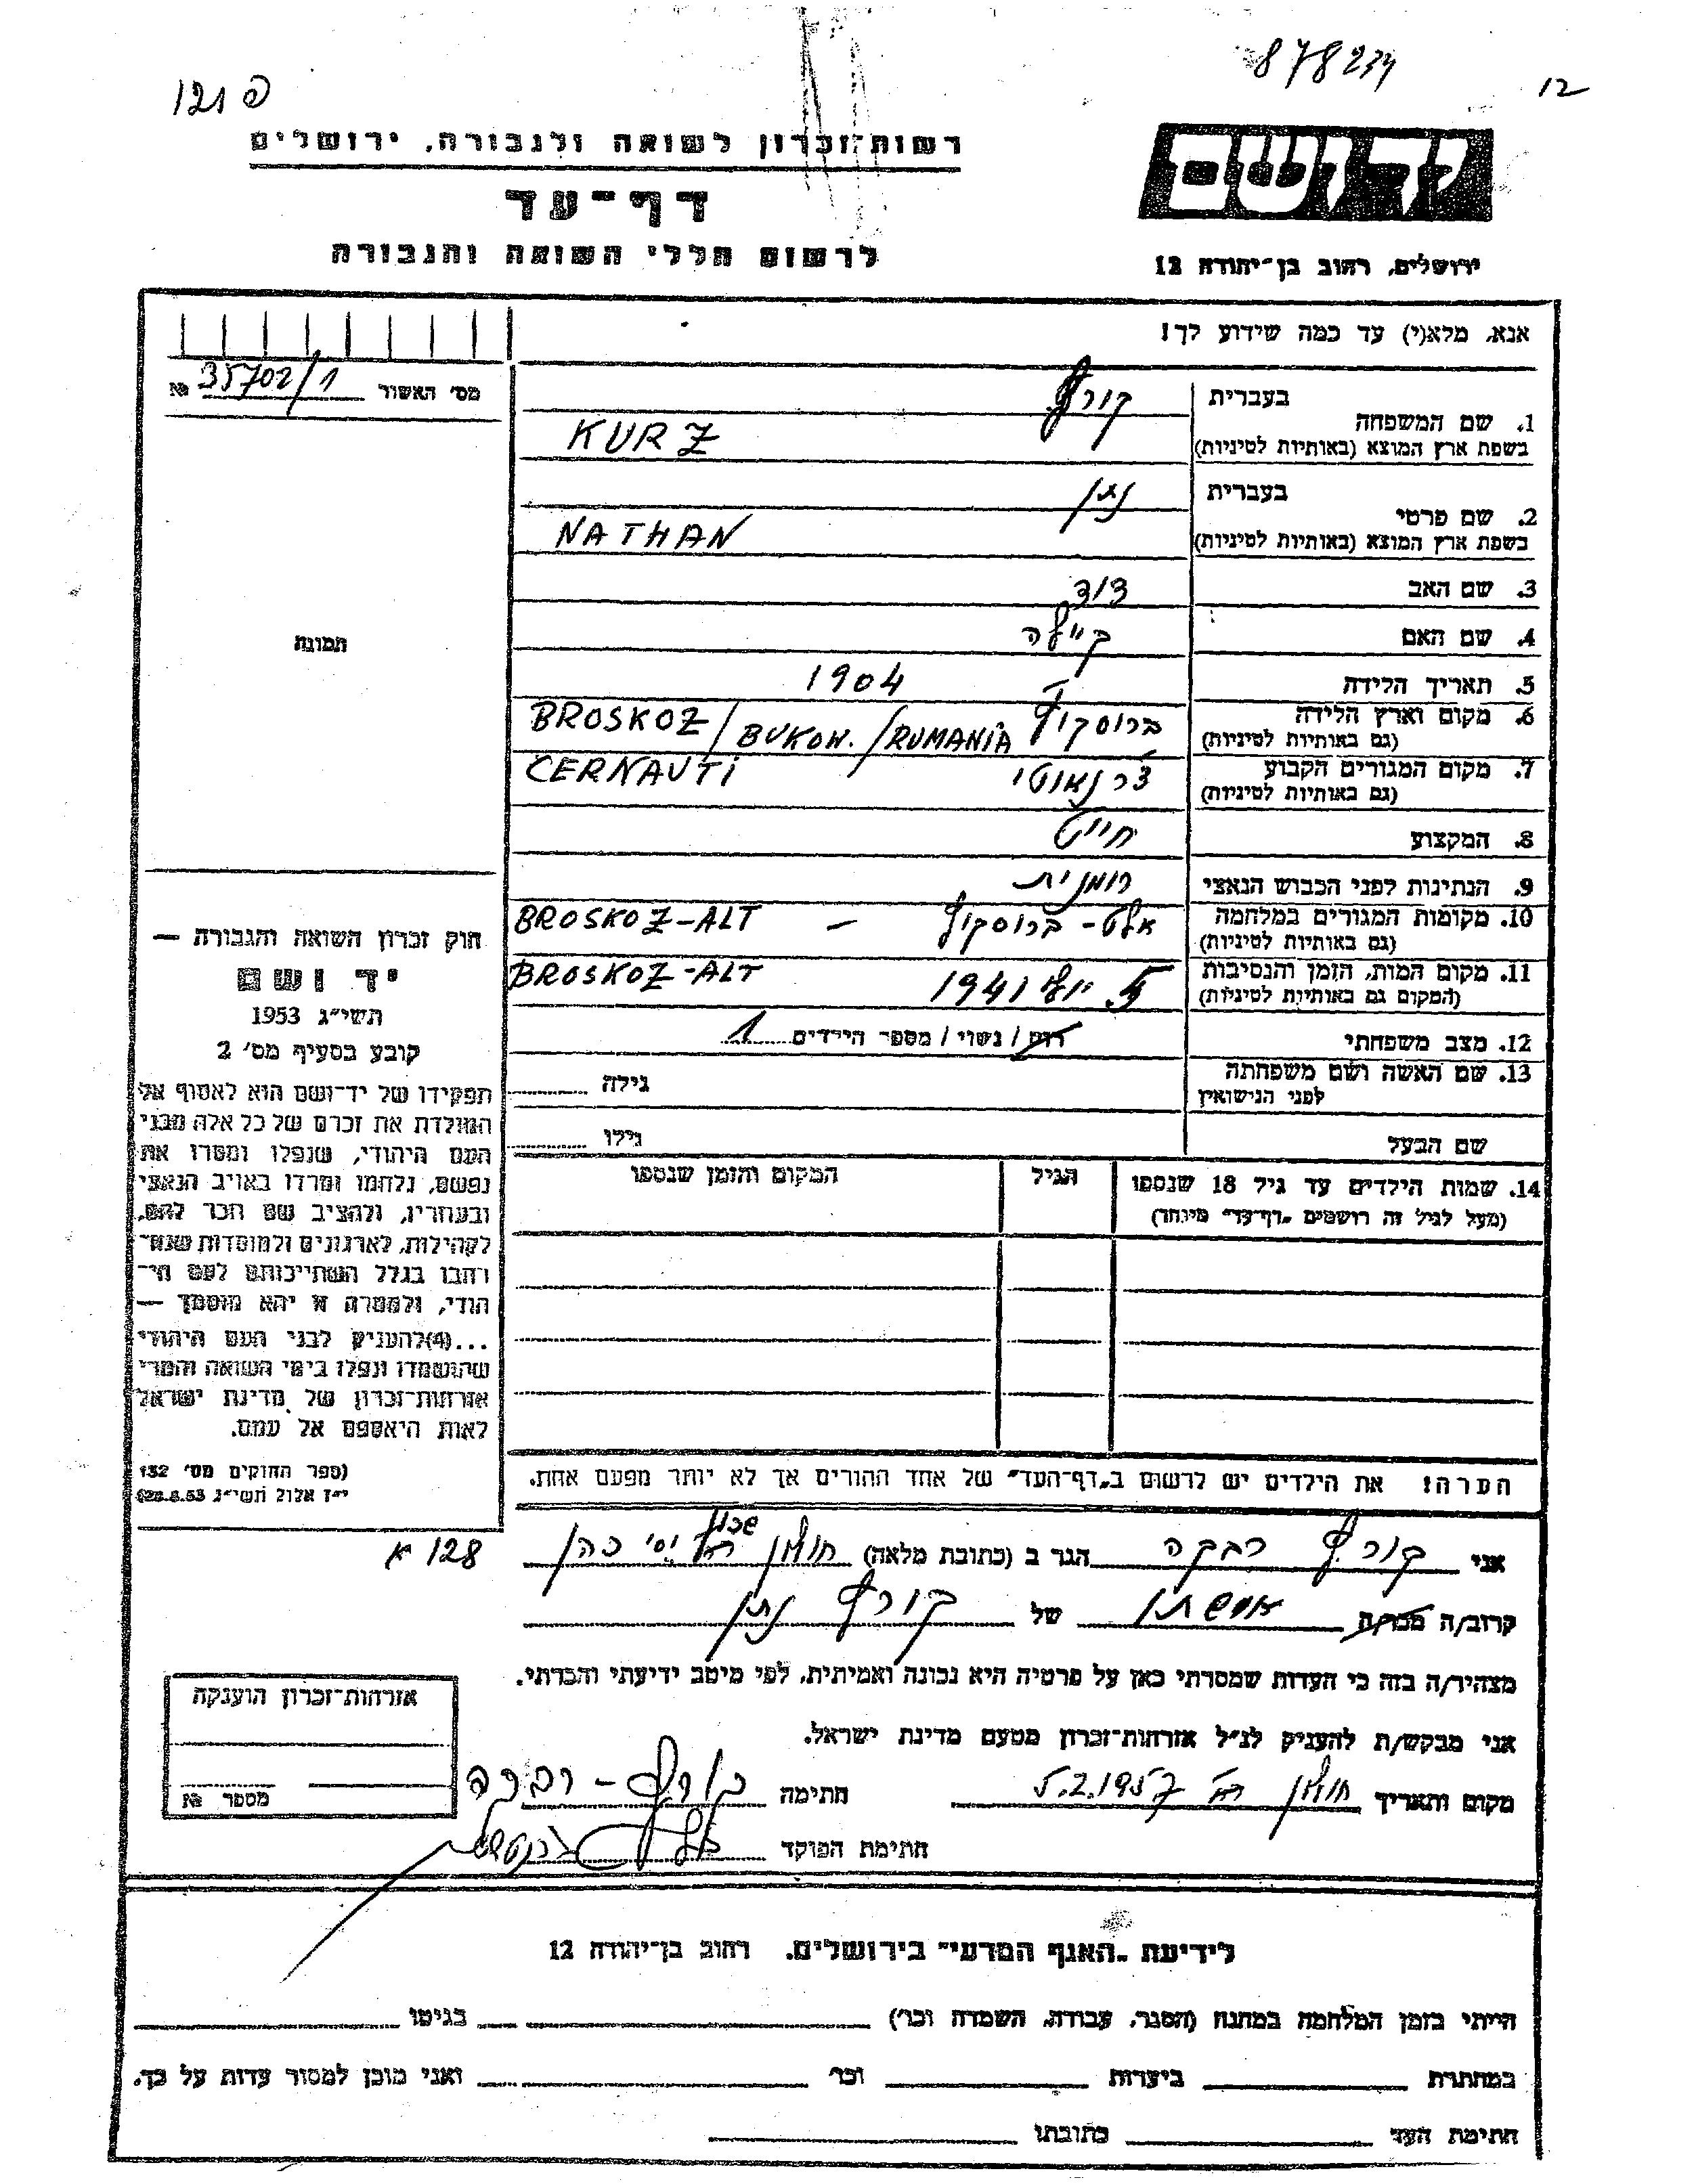 878234
12
פ 121
יד ושם
רשות־זכרון לשואה ולגבורה, ירושלים
דף־עד
לרשום חללי השואה והגבורה
ירושלים, רחוב בן־יהודה 12
אנא, מלא(י) עד כמה שידוע לך!
מס׳ האשור 35702/1 №
בעברית קורץ
1. שם המשפחה
בשפת ארץ המוצא (באותיות לטיניות) KURZ
בעברית נתן
2. שם פרטי
בשפת ארץ המוצא (באותיות לטיניות) NATHAN
3. שם האב דוד
4. שם האם קיילה
5. תאריך הלידה 1904
6. מקום וארץ הלידה ברוסקוץ BROSKOZ / BUKOW. / RUMANIA
(גם באותיות לטיניות)
7. מקום המגורים הקבוע צ׳רנאוטי CERNAUTI
(גם באותיות לטיניות)
8. המקצוע חייט
9. הנתינות לפני הכבוש הנאצי רומנית
10. מקומות המגורים במלחמה אלט - ברוסקוץ — BROSKOZ-ALT
(גם באותיות לטיניות)
11. מקום המות, הזמן והנסיבות 5 יולי 1941 BROSKOZ-ALT
(המקום גם באותיות לטיניות)
12. מצב משפחתי רוק / נשוי / מספר הילדים 1
13. שם האשה ושם משפחתה גילה
לפני הנישואין
שם הבעל גילו
14. שמות הילדים עד גיל 18 שנספו הגיל המקום והזמן שנספו
(מעל לגיל זה רושמים „דף־עד״ מיוחד)
תמונה
חוק זכרון השואה והגבורה —
יד ושם
תשי״ג 1953
קובע בסעיף מס׳ 2
תפקידו של יד־ושם הוא לאסוף אל
המולדת את זכרם של כל אלה מבני
העם היהודי, שנפלו ומסרו את
נפשם, נלחמו ומרדו באויב הנאצי
ובעוזריו, ולהציב שם וזכר להם,
לקהילות, לארגונים ולמוסדות שנח־
רבו בגלל השתייכותם לעם הי־
הודי, ולמטרה זו יהא מוסמך —
...(4) להעניק לבני העם היהודי
שהושמדו ונפלו בימי השואה והמרי
אזרחות־זכרון של מדינת ישראל
לאות היאספם אל עמם.
(ספר החוקים מס׳ 132
י״ז אלול תשי״ג 28.8.53)
הערה! את הילדים יש לרשום ב„דף־העד״ של אחד ההורים אך לא יותר מפעם אחת.
128 א
שכון
אני קורץ רבקה הגר ב (כתובת מלאה) חולון רח׳ יוסי כהן
קרוב/ה מכר/ה אשתו של קורץ נתן
מצהיר/ה בזה כי העדות שמסרתי כאן על פרטיה היא נכונה ואמיתית, לפי מיטב ידיעתי והכרתי.
אני מבקש/ת להעניק לנ״ל אזרחות־זכרון מטעם מדינת ישראל.
מקום ותאריך חולון 5.2.1957 חתימה קורץ - רבקה
חתימת הפוקד
אזרחות־זכרון הוענקה
מספר №
לידיעת „האגף המדעי״ בירושלים. רחוב בן־יהודה 12
הייתי בזמן המלחמה במחנה (הסגר, עבודה, השמדה וכו׳) בגיטו
במחתרת ביערות וכו׳ ואני מוכן למסור עדות על כך.
חתימת העד כתובתו